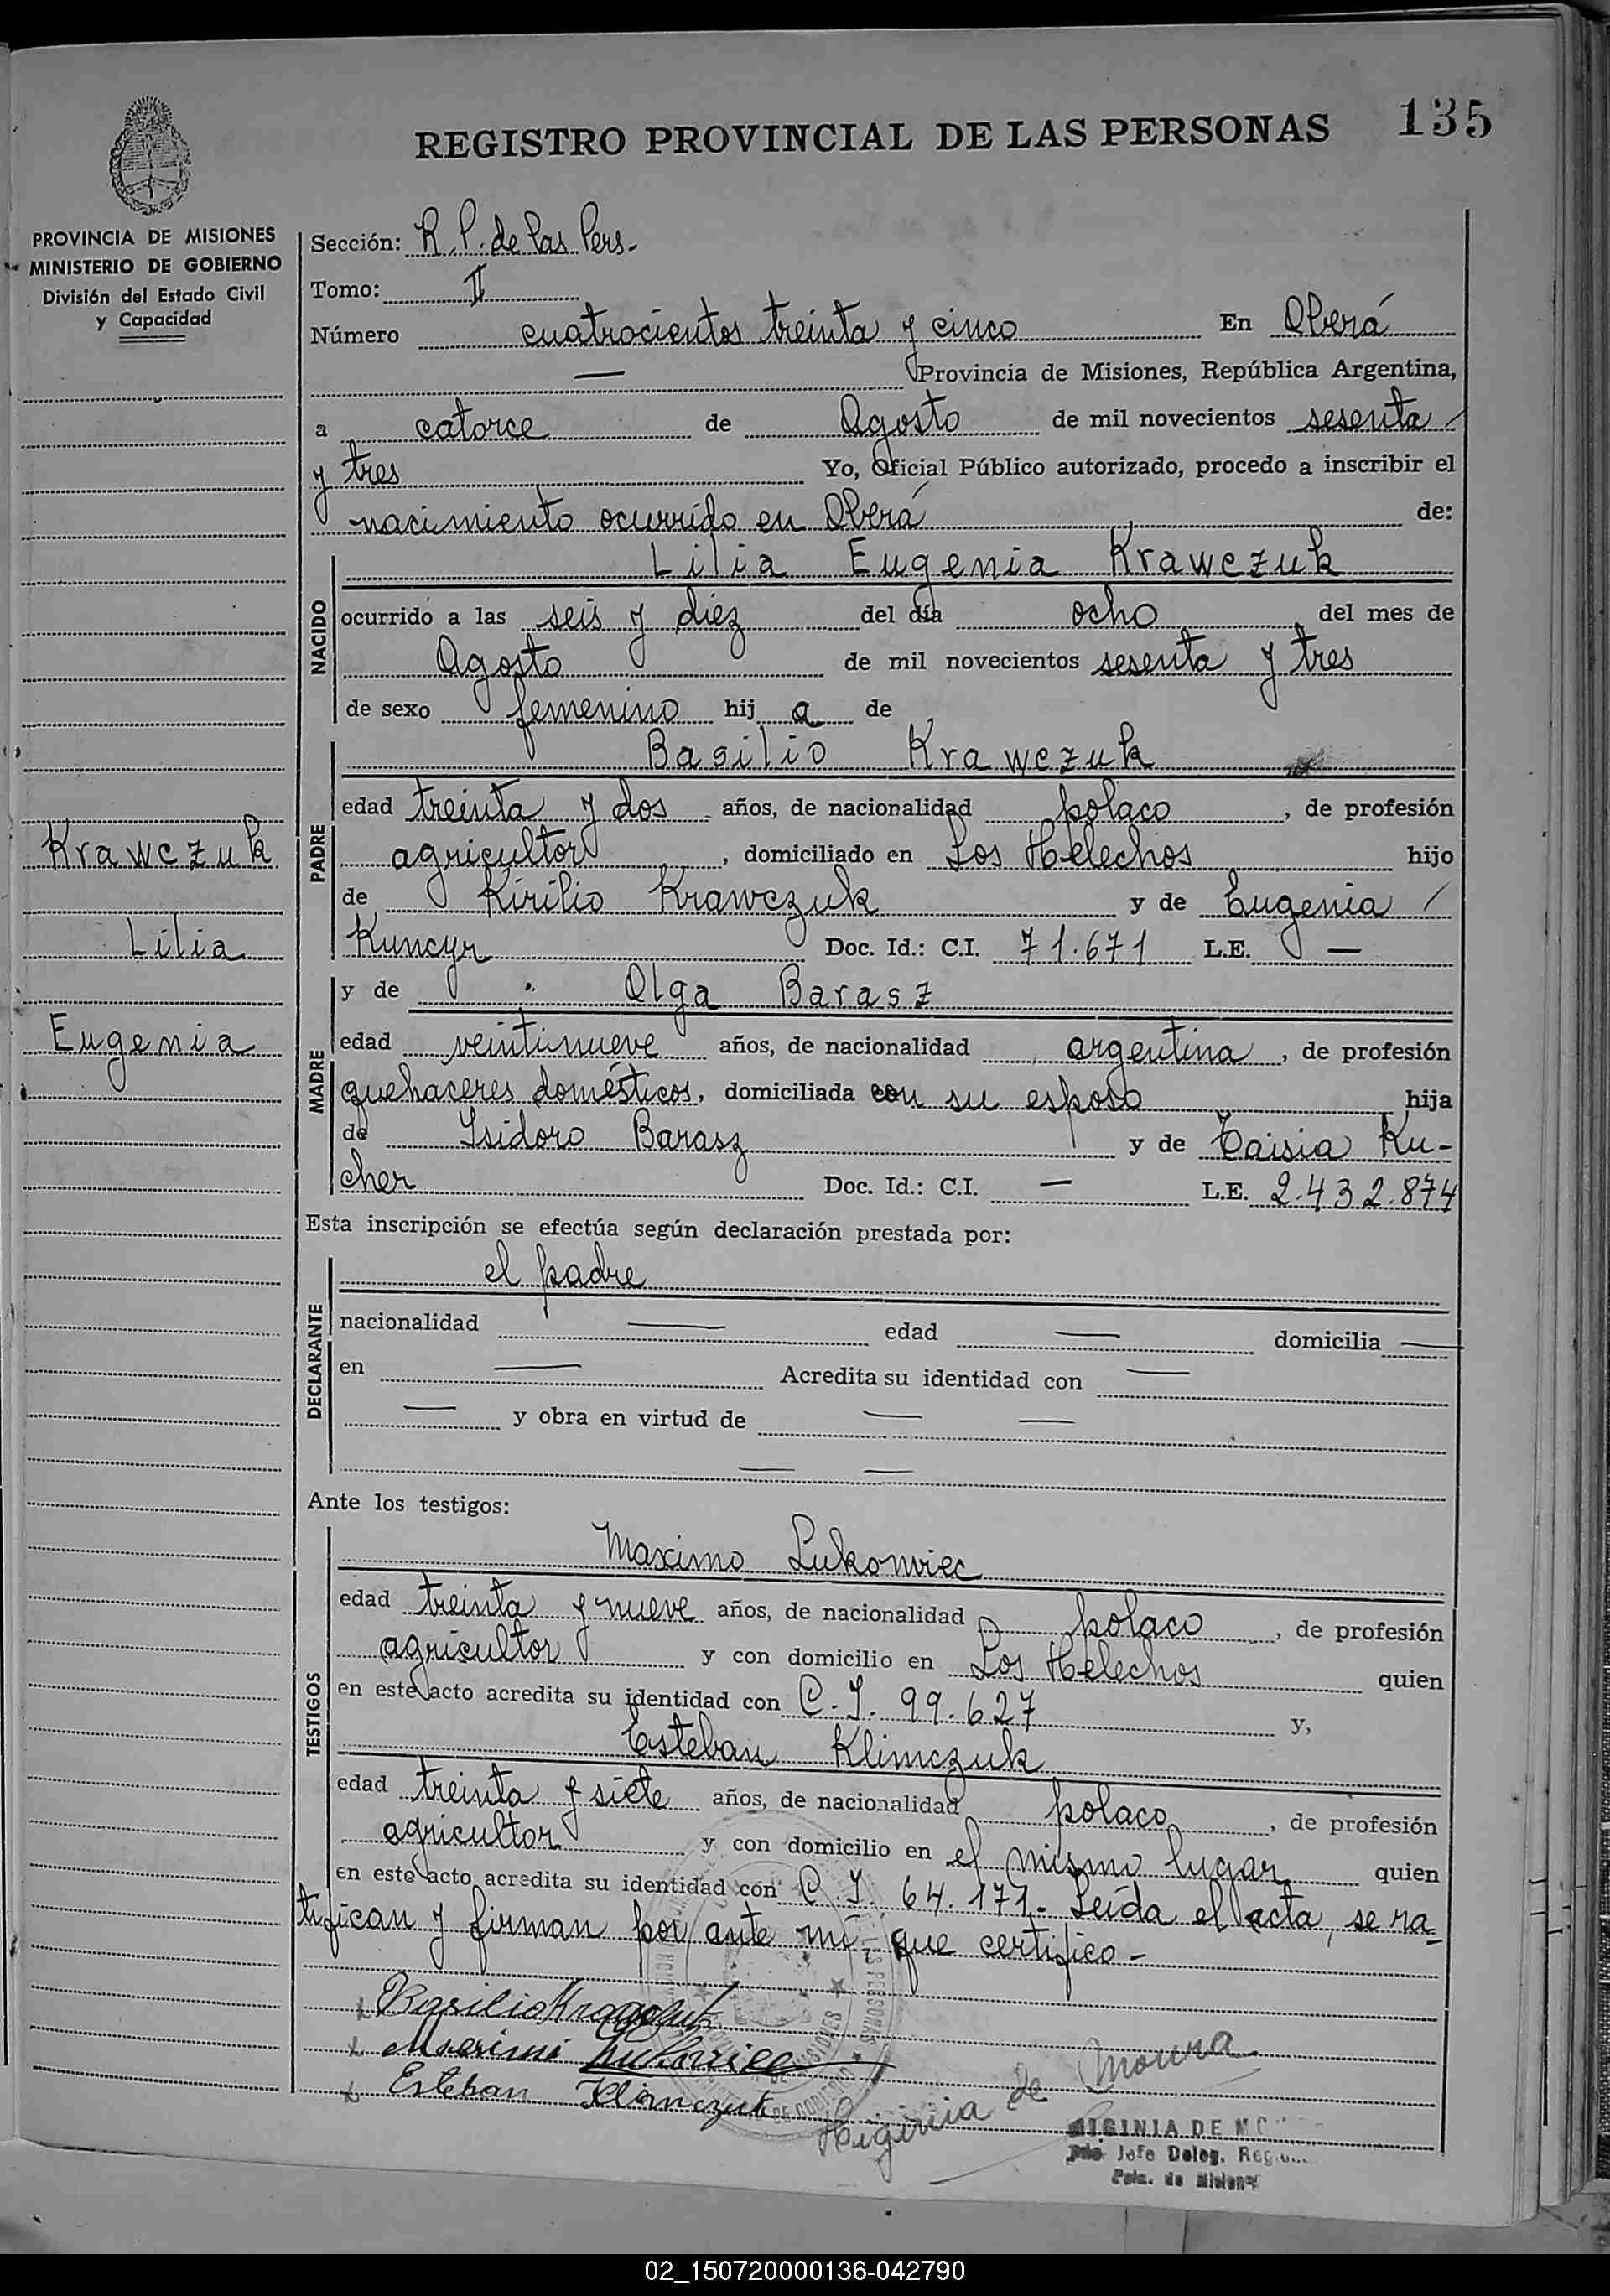 135
REGISTRO PROVINCIAL DE LAS PERSONAS
PROVINCIA DE MISIONES
MINISTERIO DE GOBIERNO
División del Estado Civil
y Capacidad
Krawczuk
Lilia
Eugenia
Sección: R. P. de las Pers.
Tomo: II
Número cuatrocientos treinta y cinco En Oberá
— Provincia de Misiones, República Argentina,
a catorce de Agosto de mil novecientos sesenta
y tres Yo, Oficial Público autorizado, procedo a inscribir el
nacimiento ocurrido en Oberá de:
NACIDO
Lilia Eugenia Krawczuk
ocurrido a las seis y diez del día ocho del mes de
Agosto de mil novecientos sesenta y tres
de sexo femenino hij a de
PADRE
Basilio Krawczuk
edad treinta y dos años, de nacionalidad polaco, de profesión
agricultor, domiciliado en Los Helechos hijo
de Kirilio Krawczuk y de Eugenia
Kuncyr Doc. Id.: C.I. 71.671 L.E. —
MADRE
y de Olga Barasz
edad veintinueve años, de nacionalidad argentina, de profesión
quehaceres domésticos, domiciliada con su esposo hija
de Isidoro Barasz y de Taisia Ku-
cher Doc. Id.: C.I. — L.E. 2.432.874
Esta inscripción se efectúa según declaración prestada por:
DECLARANTE
el padre
nacionalidad — edad — domicilia —
en — Acredita su identidad con —
— y obra en virtud de — —
— —
Ante los testigos:
TESTIGOS
Maximo Lukowiec
edad treinta y nueve años, de nacionalidad polaco, de profesión
agricultor y con domicilio en Los Helechos quien
en este acto acredita su identidad con C. I. 99.627 y,
Esteban Klimczuk
edad treinta y siete años, de nacionalidad polaco, de profesión
agricultor y con domicilio en el mismo lugar quien
en este acto acredita su identidad con C. I. 64.171.- Leída el acta, se ra-
tifican y firman por ante mí que certifico-
x Basilio Krawczuk
x Maximo Lukowiec
x Esteban Klimczuk
Higinia de Moura
HIGINIA DE MO
Jefe Deleg.
Pcia. de Misiones
02_150720000136-042790